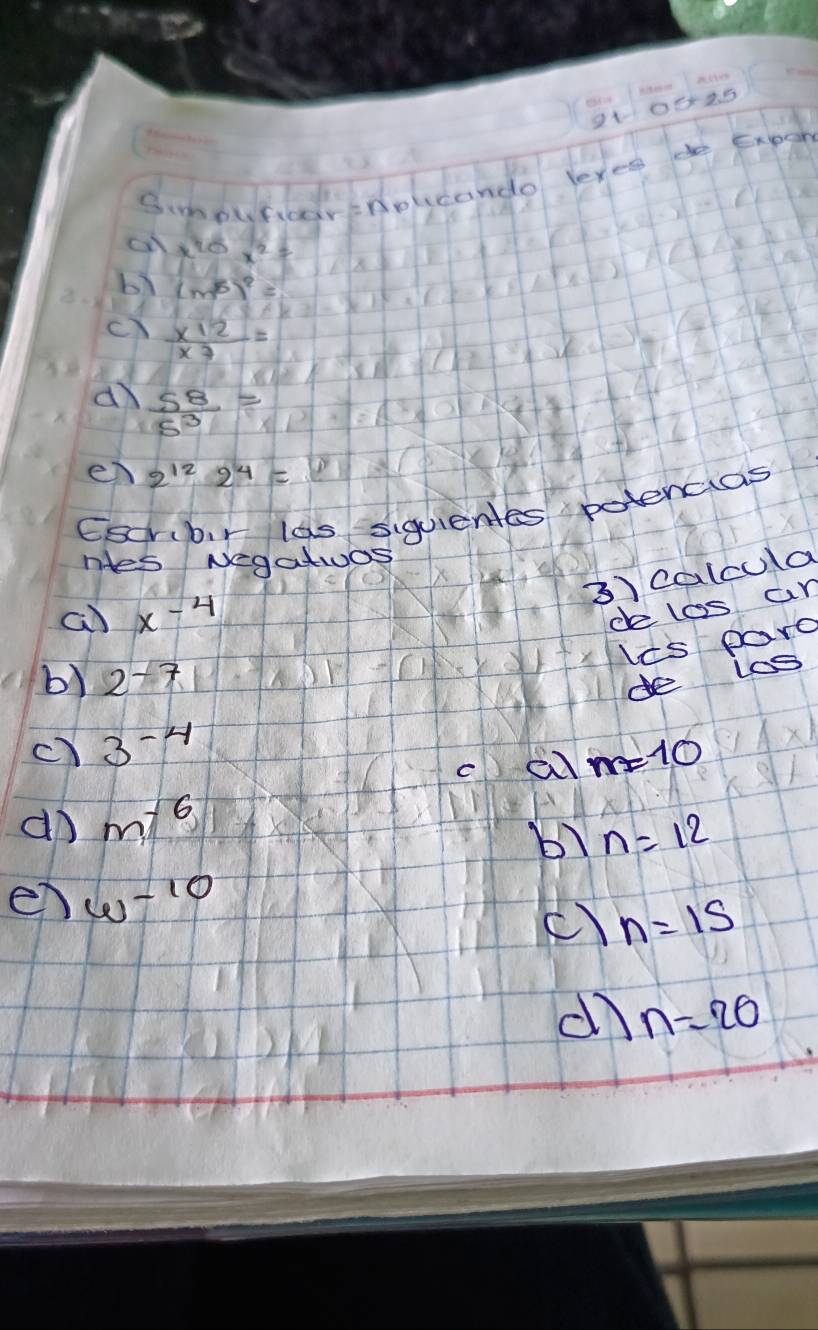 21-05-25
Simplificar = Aplicando leyes de Expon
a) x20 x2 =
b) (m5)
c) x12/x7 =
d) 58/5³ =
e) 2¹² 2⁴ =
Escribir las siguientes potencias
ntes Negativos
a) x⁻⁴
b) 2⁻⁷
c) 3⁻⁴
d) m⁻⁶
e) w⁻¹⁰
3) calcula
de los an
les para
de los
a) n=10
b) n=12
c) n=15
d) n=20